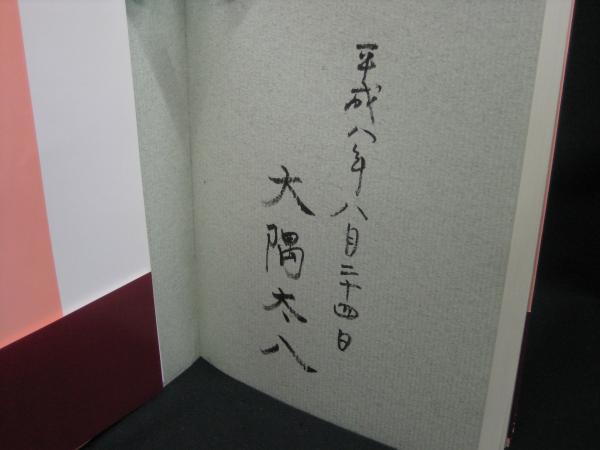 平成八年八月二十四日
大隅太八